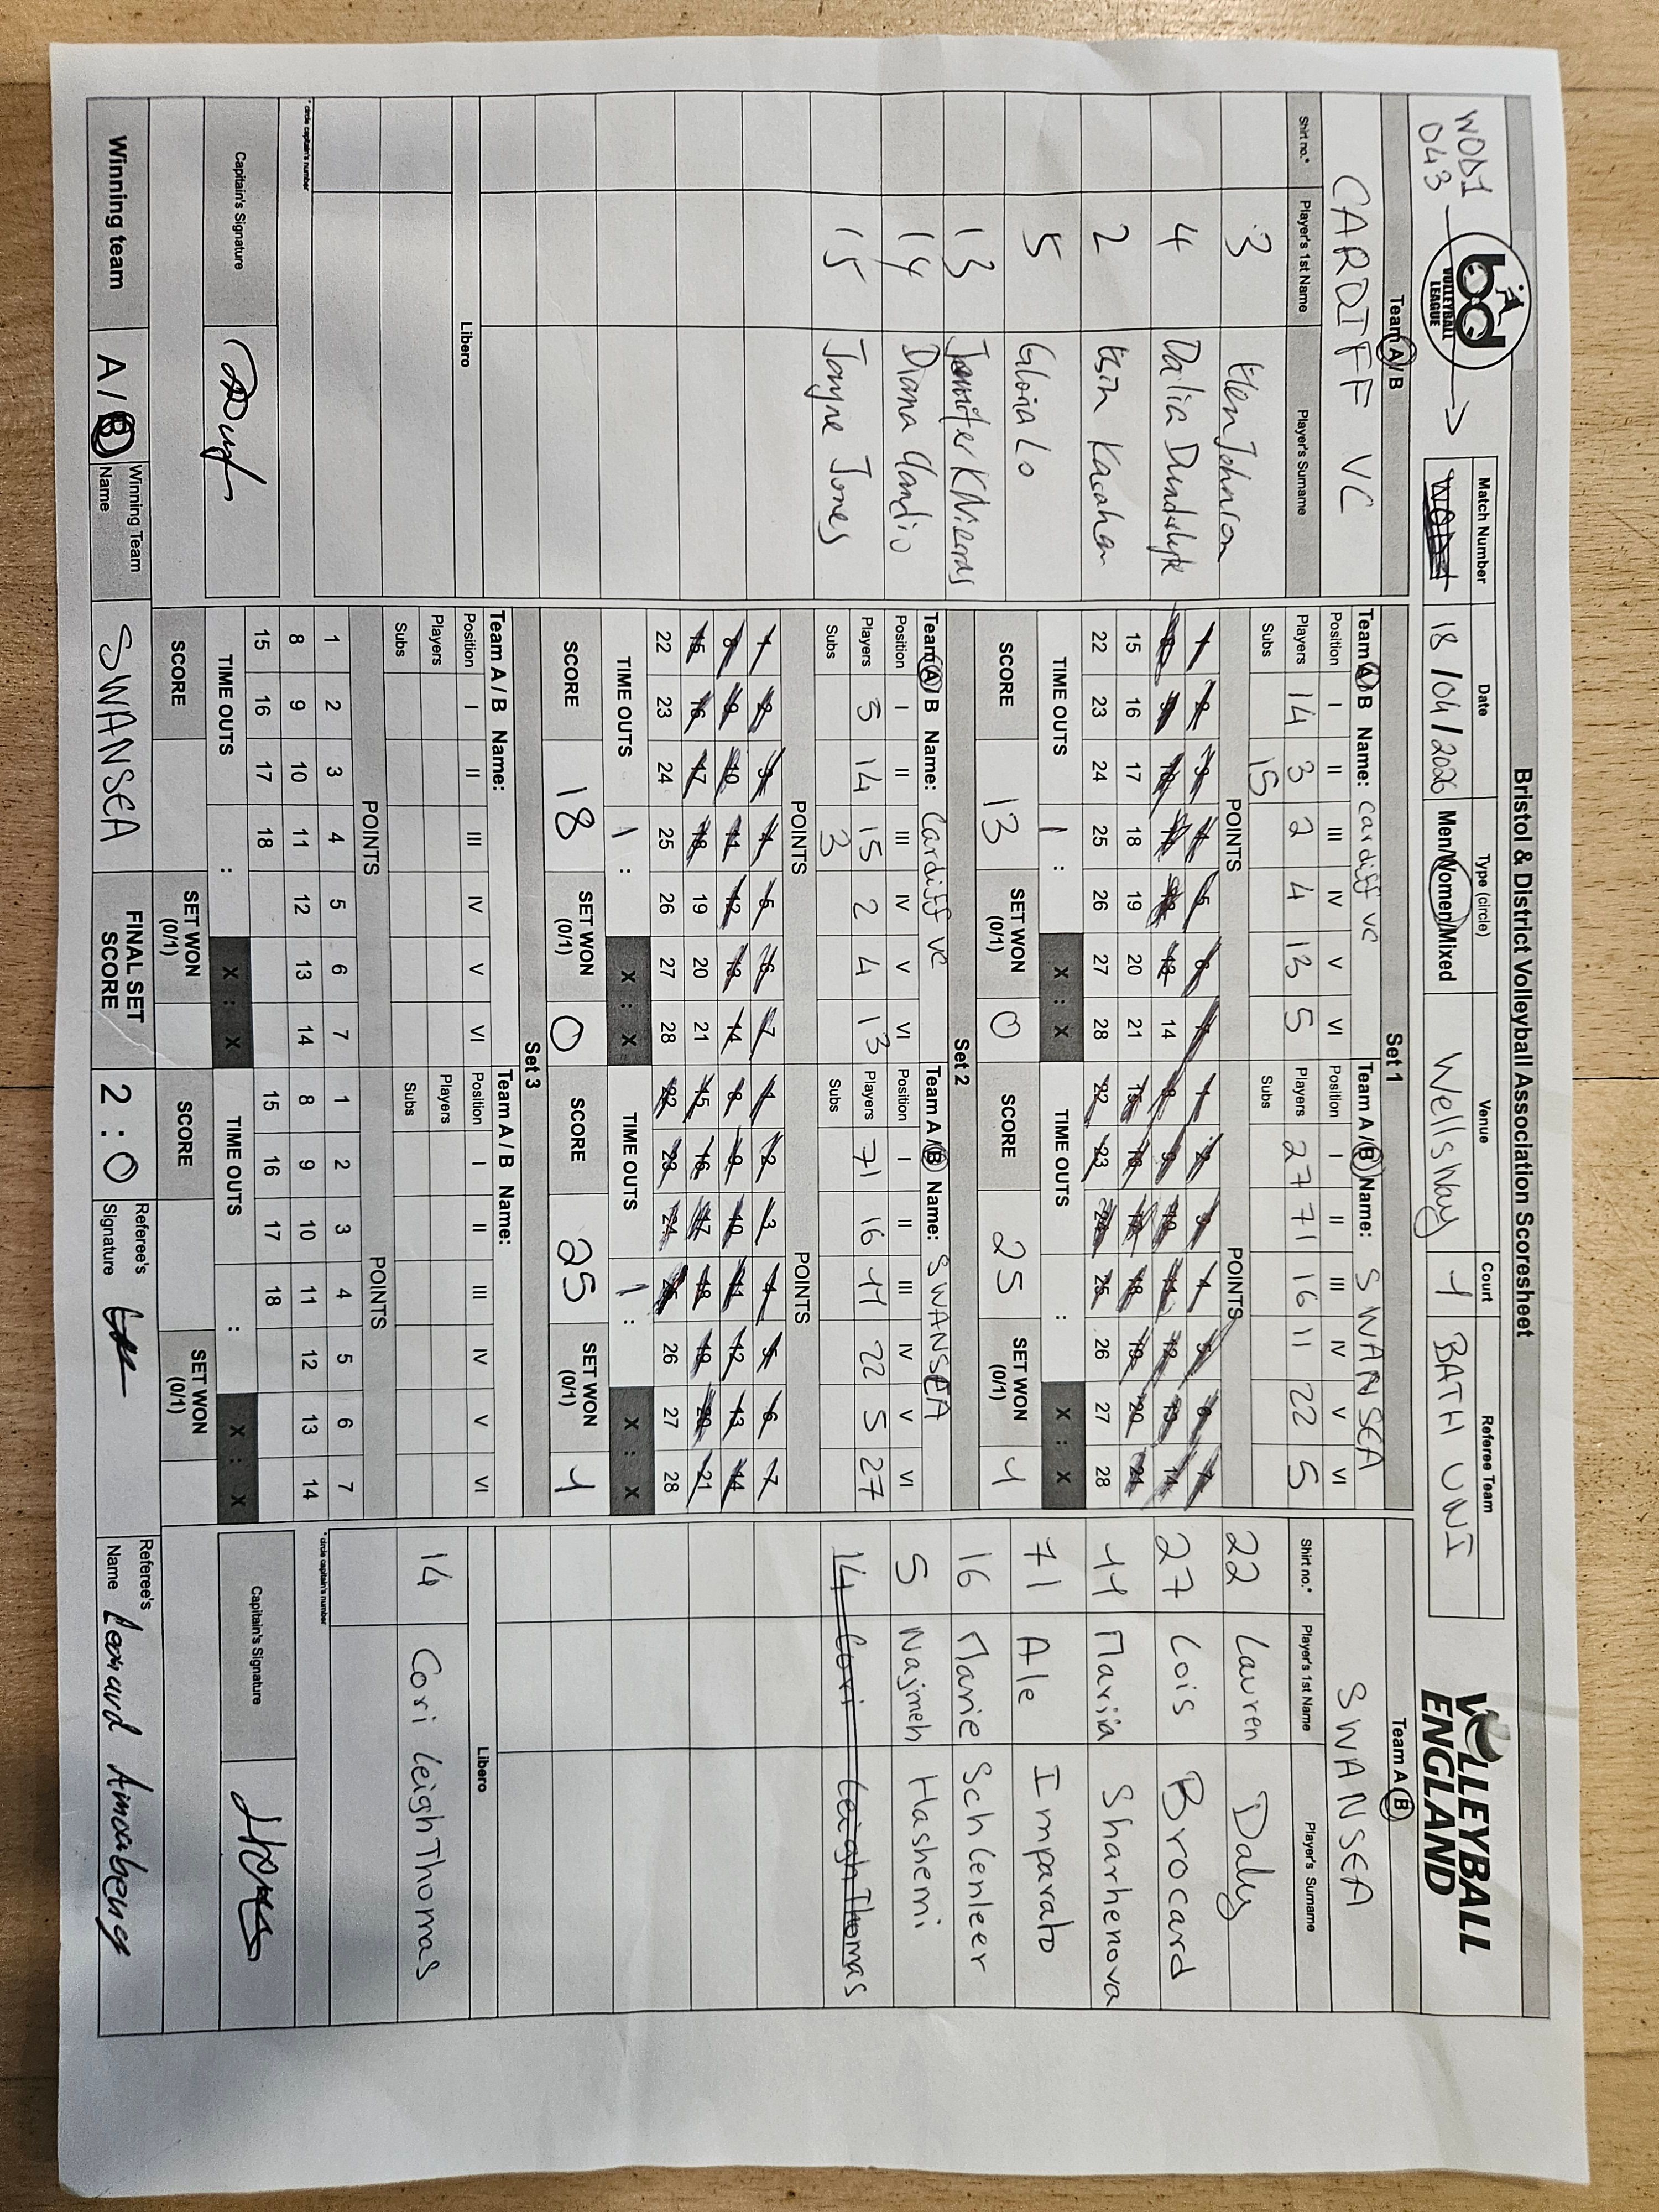 Bristol & District Volleyball Association Scoresheet
WOD1
043
bd
VOLLEYBALL
LEAGUE
Match Number Date Type (circle) Venue Court Referee Team
18/04/2026 Men/Women/Mixed Wellsway 1 BATH UNI
VOLLEYBALL
ENGLAND
Team A / B
CARDIFF VC
Shirt no.* Player's 1st Name Player's Surname
3 Johnson
4 Dalia
2
5 Gloria Lo
13 Jennifer
14 Diana
15 Jayne Jones
Libero
* circle captain's number
Capitain's Signature
Set 1
Team A / B Name: Cardiff VC
Position I II III IV V VI
Players 14 3 2 4 13 5
Subs 15
POINTS
1 2 3 4 5 6 7
8 9 10 11 12 13 14
15 16 17 18 19 20 21
22 23 24 25 26 27 28
TIME OUTS 1 : X : X
SCORE 13 SET WON (0/1) 0
Team A / B Name: SWANSEA
Position I II III IV V VI
Players 27 71 16 11 22 5
Subs
POINTS
1 2 3 4 5 6 7
8 9 10 11 12 13 14
15 16 17 18 19 20 21
22 23 24 25 26 27 28
TIME OUTS : X : X
SCORE 25 SET WON (0/1) 1
Set 2
Team A / B Name: Cardiff VC
Position I II III IV V VI
Players 3 14 15 2 4 13
Subs 3
POINTS
1 2 3 4 5 6 7
8 9 10 11 12 13 14
15 16 17 18 19 20 21
22 23 24 25 26 27 28
TIME OUTS 1 : X : X
SCORE 18 SET WON (0/1) 0
Team A / B Name: SWANSEA
Position I II III IV V VI
Players 71 16 11 22 5 27
Subs
POINTS
1 2 3 4 5 6 7
8 9 10 11 12 13 14
15 16 17 18 19 20 21
22 23 24 25 26 27 28
TIME OUTS 1 : X : X
SCORE 25 SET WON (0/1) 1
Set 3
Team A / B Name:
Position I II III IV V VI
Players
Subs
POINTS
1 2 3 4 5 6 7
8 9 10 11 12 13 14
15 16 17 18
TIME OUTS : X : X
SCORE SET WON (0/1)
Team A / B Name:
Position I II III IV V VI
Players
Subs
POINTS
1 2 3 4 5 6 7
8 9 10 11 12 13 14
15 16 17 18
TIME OUTS : X : X
SCORE SET WON (0/1)
Team A / B
SWANSEA
Shirt no.* Player's 1st Name Player's Surname
22 Lauren Daly
27 Lois Brocard
11 Mariia Sharhenova
71 Ale Imparato
16 Marie Schlenleer
5 Najmeh Hashemi
14 Cori Leigh Thomas
Libero
14 Cori Leigh Thomas
* circle captain's number
Capitain's Signature
Winning team A / B Winning Team Name SWANSEA FINAL SET SCORE 2 : 0 Referee's Signature Referee's Name Leonard Amoabeng